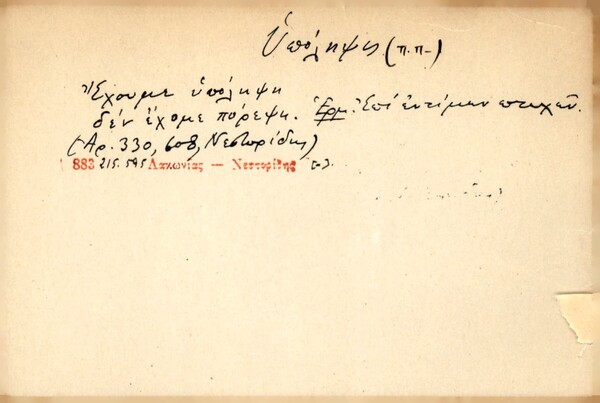 Ὑπόληψις (π.π.)
Ἔχουμε ὑπόληψη
δέν ἔχομε πόρεψη. Ἑρμ. Ἐπί ἐντίμων πτωχῶν.
(Αρ. 330, 608, Νεστορίδης)
883 215.595 Λακωνίας — Νεστορίδης